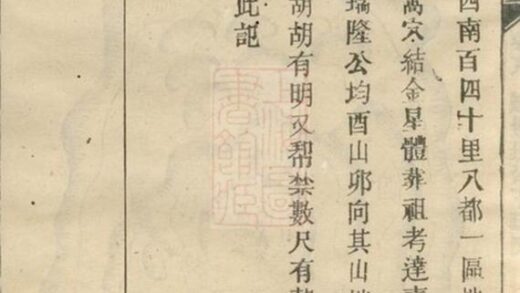 西南百四十里八都一區
窩穴結金星體葬祖考達
瑞隆公均酉山卯向其山
胡胡有明又帮禁數尺有
此記